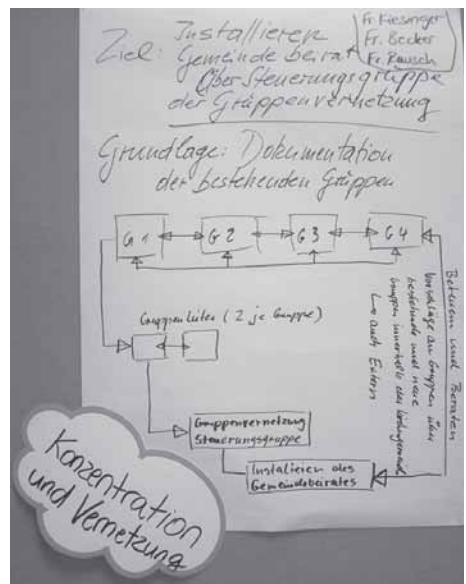 Ziel: Installieren
Gemeindebeirat
Über Steuerungsgruppe
der Gruppenvernetzung
Fr. Kiesinger
Fr. Becker
Fr. Rausch
Grundlage: Dokumentation
der bestehenden Gruppen
G1 G2 G3 G4
Gruppenleiter (2 je Gruppe)
Gruppenvernetzung
Steuerungsgruppe
Installieren des
Gemeindebeirates
Betreuen und Beraten
Vorschläge an Gruppen über
bestehende und neue
Gruppen innerhalb der
auch Extern
Konzentration
und Vernetzung